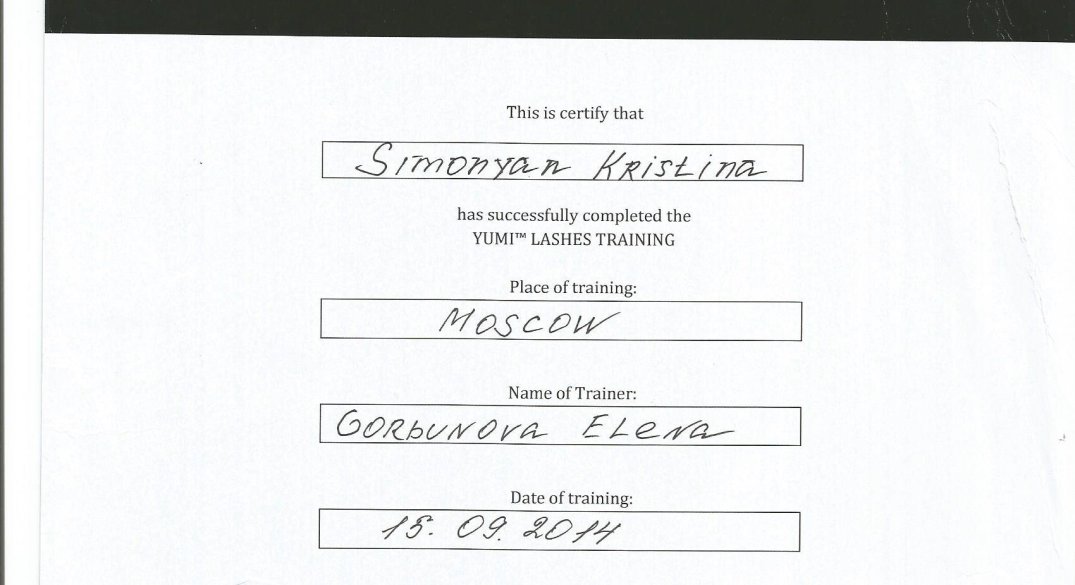 This is certify that
Simonyan Kristina
has successfully completed the
YUMI™ LASHES TRAINING
Place of training:
MOSCOW
Name of Trainer:
GORBUNOVA ELENA
Date of training:
15. 09. 2014